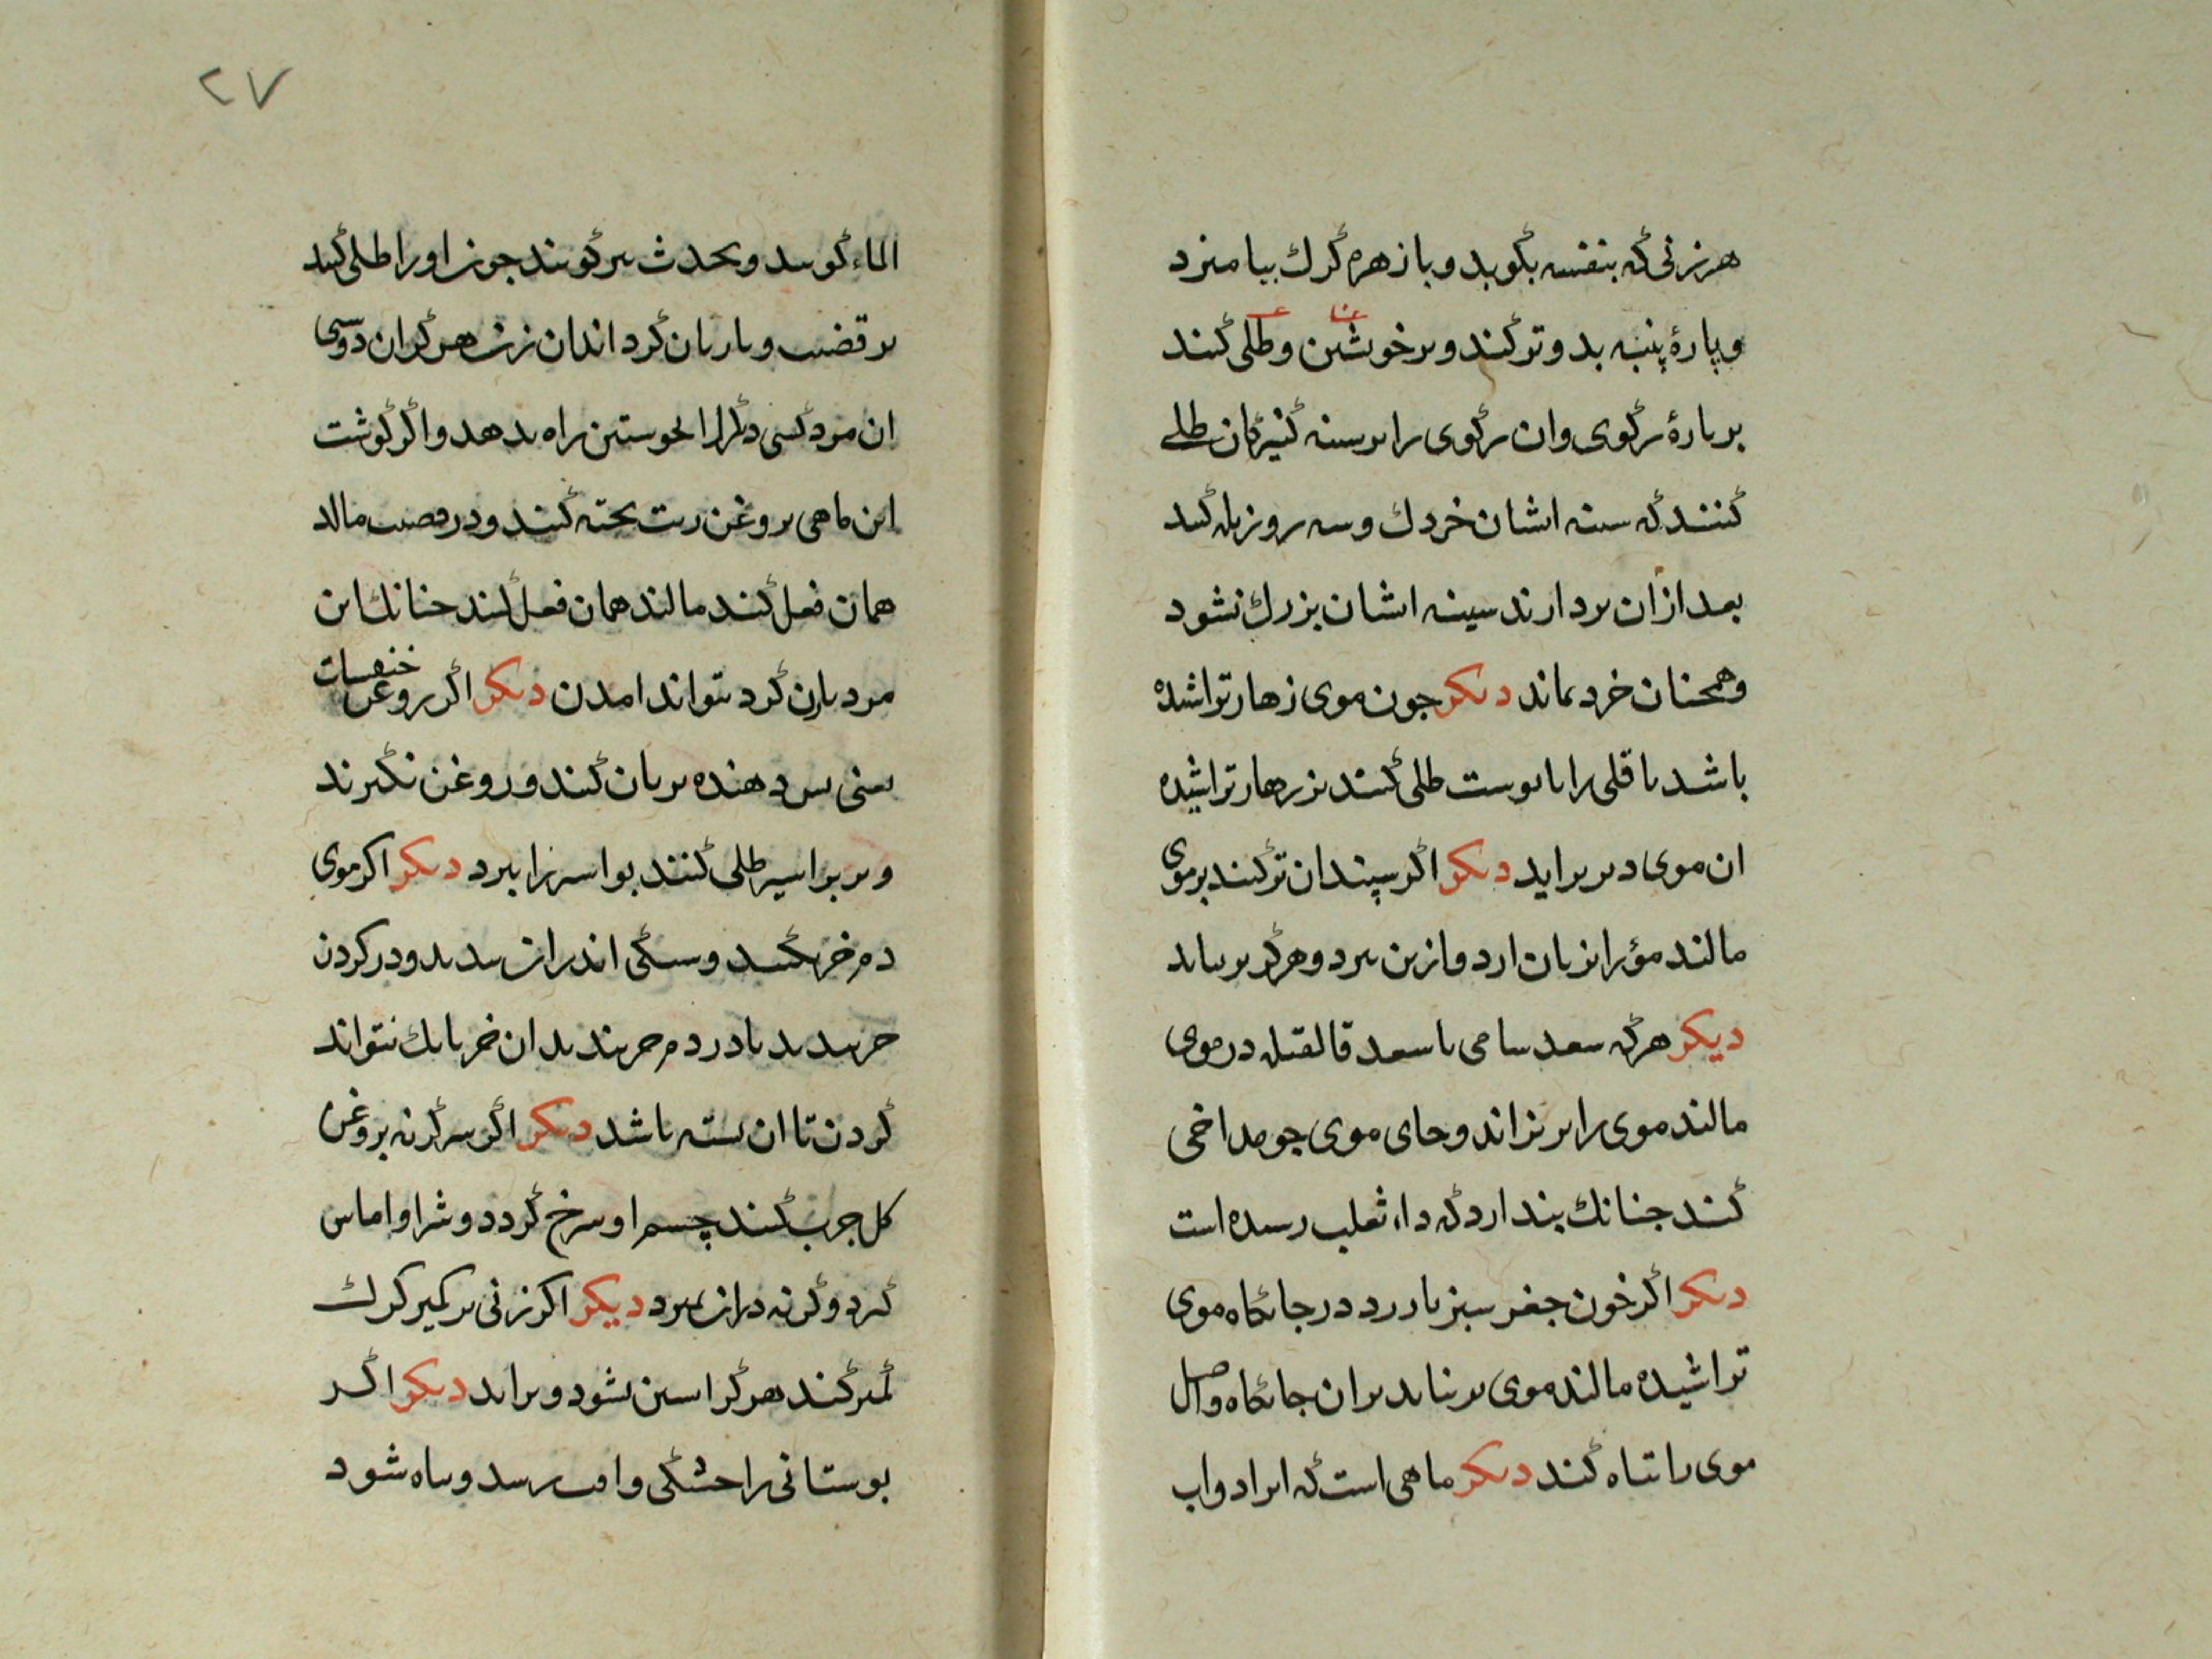 هر زنی که بنفسه بکوبد و با زهره کرك بیامیزد
و پارۀ پنبه بدو تر کند و بر خویشتن و طلی کند
بر پارۀ رکوی وان رکوی را بر سینه کنیزکان طلی
کنند که سینه ایشان خردك و سه روز یله کند
بعد ازان بردارند سینه ایشان بزرك نشود
و همچنان خرد بماند دیکر جون موی زهار تراشیده
باشد باقلی را با پوست طلی کنند بزیر هار تراشیده
ان موی دیر براید دیکر اکر سپندان تر کنند بر موی
مالند مؤ را بزیان ارد و از بن ببرد و هرکز بر نیاید
دیکر هرکه در موی
مالند موی را بریزاند و جای موی جو
کند جنانك بندارد که داء ثعلب رسیده است
دیکر اکر خون جغر سبز در جایکاه موی
تراشیده مالند موی بر نیاید بران جایکاه واصل
موی را تباه کند دیکر ماهی است که او را دواب
۲۷
الماء کویند و بحدث نیز کویند جون او را طلی کند
بر قضیب و با زنان کرد اندان زن هرکز ان دوسی
ان مرد کسی دکر را بخویشتن راه ندهد واکر کوشت
این ماهی بروغن زیت بخته کنند و در قضیب مالد
همان فعل کند مالند همان فعل کند جنانك این
مرد بازن کرد نتواند امدن دیکر اکر روغن خنفسات
یعنی بریان کنند و روغن نکیرند
و بر بواسیر طلی کنند بواسیر را ببرد دیکر اکر موی
دم خر بکنند و سنکی اندران بندید و در کردن
خر بندید یا در دم خر بندید ان خر بانك نتواند
کردن تا ان بسته باشد دیکر اکر سر کربه بروغن
کل جرب کنند چشم او سرخ کردد و شرا و اماس
کیرد و کرنه دران بمیرد دیکر اکر زنی بر کمیز کرك
کمیز کند هرکز ابستن نشود و براید دیکر اکر
بوستانی را خشکی و افت رسد و تباه شود